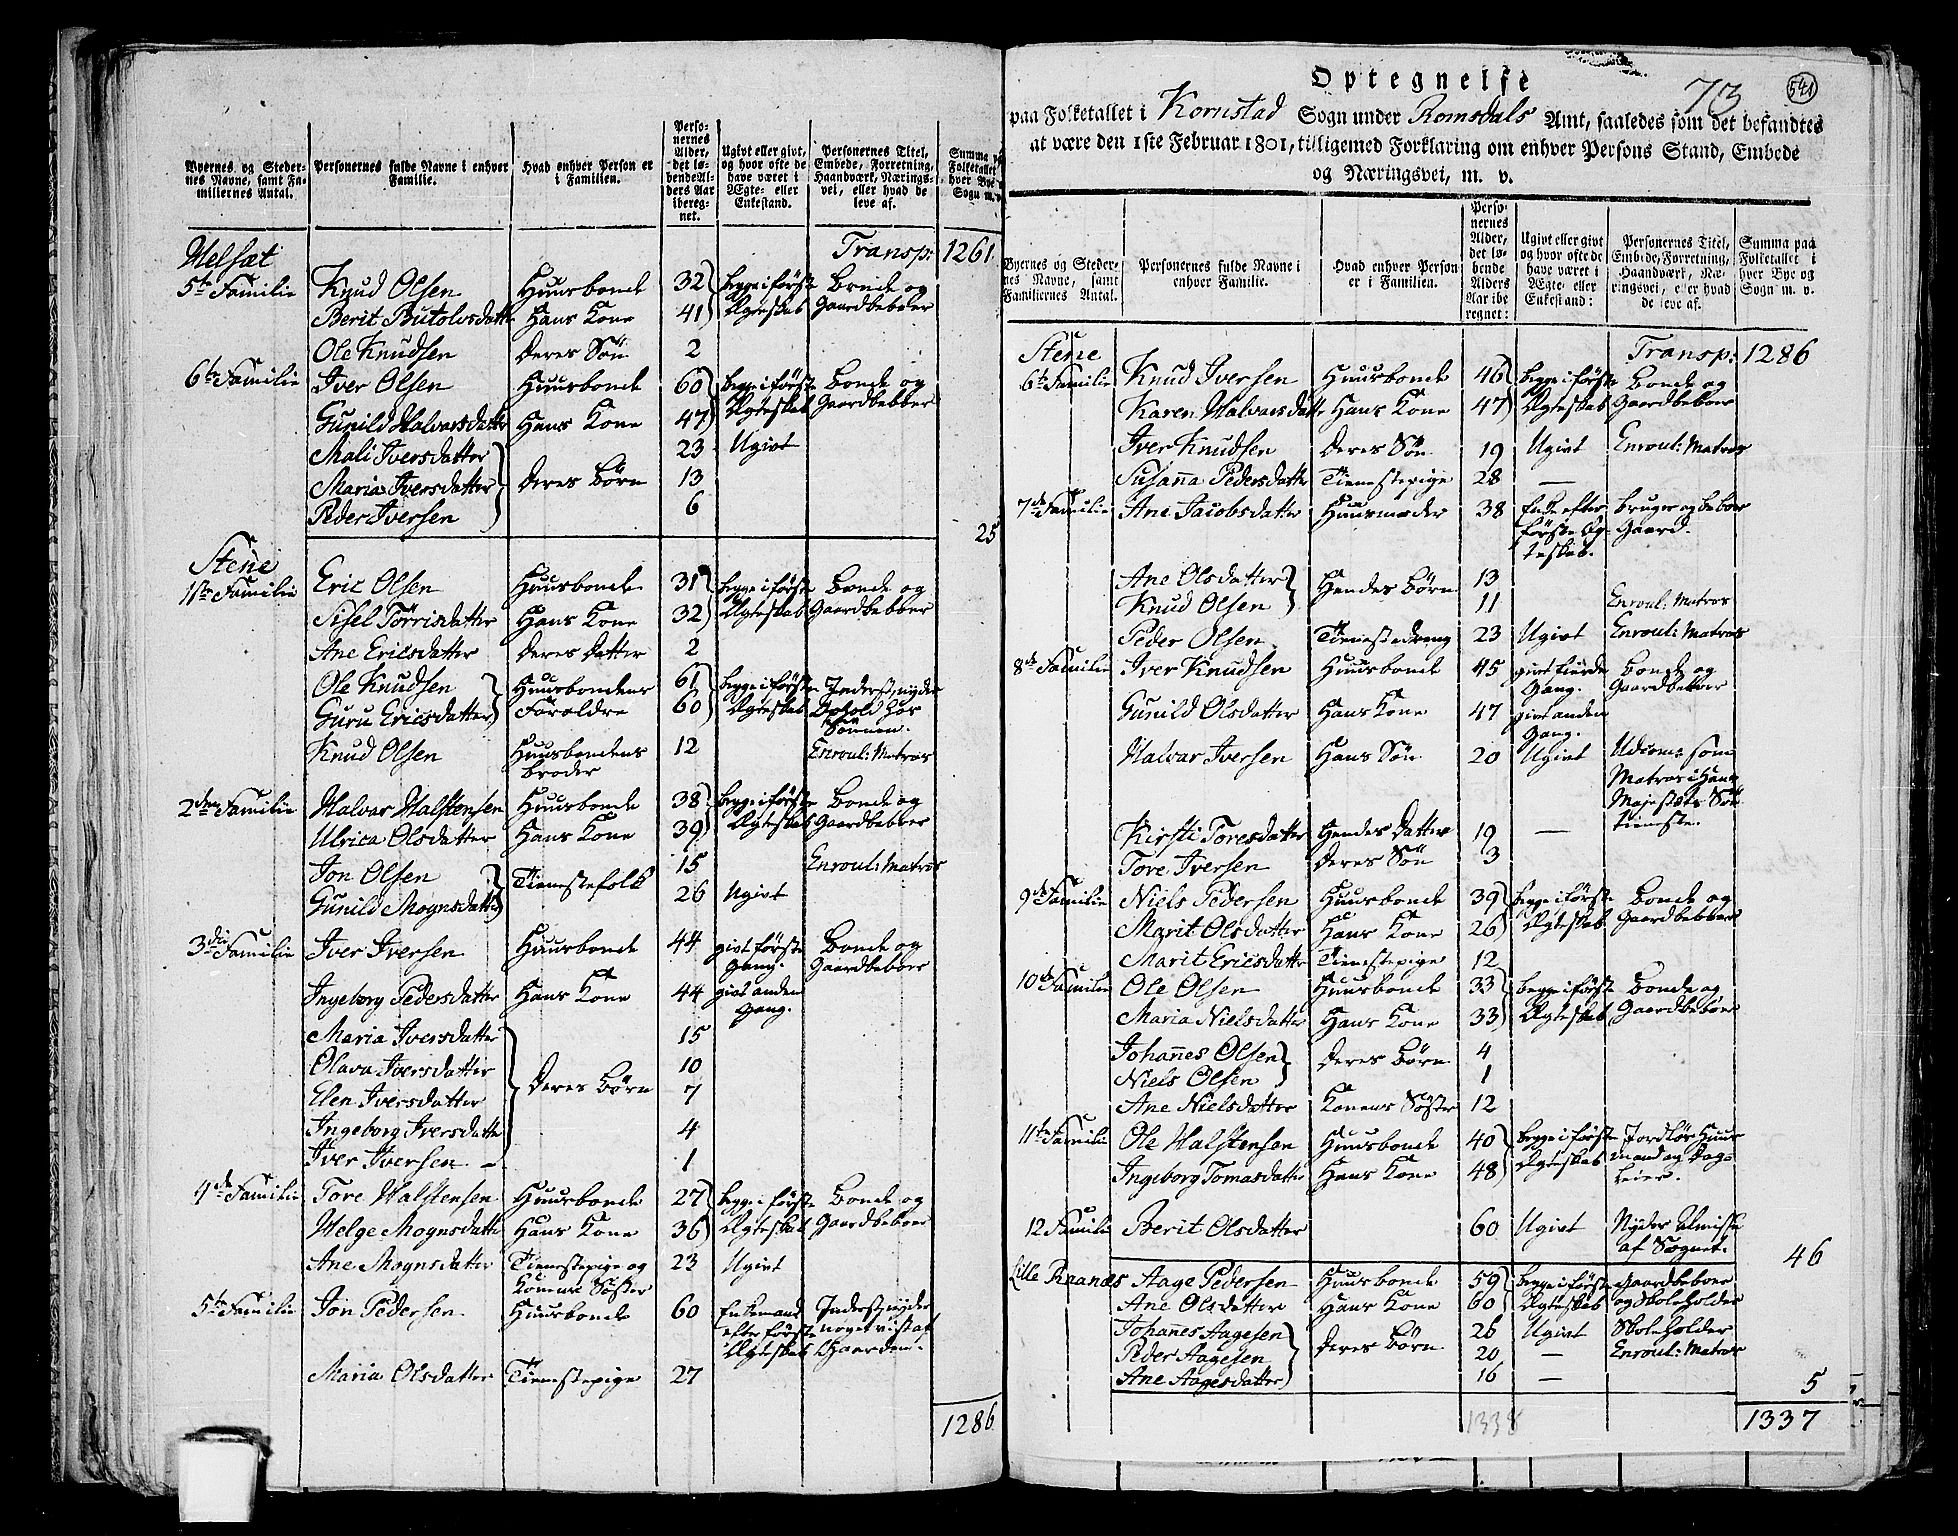 Byernes og Steder-
nes Navne, samt Fa-
miliernes Antal.
Personernes fulde Navne i enhver
Familie.
Hvad enhver Person er
i Familien.
Perso-
nernes
Alder,
det lø-
bende Al-
ders Aar
ibereg-
net.
Ugivt eller givt,
og hvor ofte de
have været i
Ægte- eller
Enkestand.
Personernes Titel,
Embede, Forretning,
Haandværk, Nærings-
vei, eller hvad de
leve af.
Summa p
Folketallet
hver Bye
Sogn m. v
Helsæt Transp: 1261
5te Familie Knud Olsen Huusbonde 32 begge i første Bonde og
Berit Butolvsdatter Hans Kone 41 Ægteskab Gaardbeboer
Ole Knudsen Deres Søn 2
6te Familie Iver Olsen Huusbonde 60 begge i første Bonde og
Gunild Halvarsdatter Hans Kone 47 Ægteskab Gaardbeboer
Mali Iversdatter 23 Ugivt
Maria Iversdatter Deres Børn 13
Peder Iversen 6
25
Stene
1ste Familie Eric Olsen Huusbonde 31 begge i første Bonde og
Sisel Tørrisdatter Hans Kone 32 Ægteskab Gaardbeboer
Ane Ericsdatter Deres Datter 2
Ole Knudsen Huusbondens 61 begge i første Inderst, nyder
Guru Ericsdatter Forældre 60 Ægteskab Ophold hos
Sønnen.
Knud Olsen Huusbondens 12 Enroul: Matros
broder
2den Familie Halvar Halstensen Huusbonde 38 begge i første Bonde og
Ulrica Olsdatter Hans Kone 39 Ægteskab Gaardbeboer
Jon Olsen Tienestefolk 15 Enroul: Matros
Gunild Mognsdatter 26 Ugivt
3die Familie Iver Iversen Huusbonde 44 givt første Bonde og
Gang. Gaardbeboer
Ingeborg Pedersdatter Hans Kone 44 givt anden
Gang.
Maria Iversdatter 15
Olava Iversdatter 10
Elen Iversdatter Deres Børn 7
Ingeborg Iversdatter 4
Iver Iversen – 1
4de Familie Tore Halstensen Huusbonde 27 begge i første Bonde og
Helge Mognsdatter Hans Kone 36 Ægteskab Gaardbeboer
Ane Mognsdatter Tienestepige og 23 Ugivt
Konens Søster
5te Familie Jon Pedersen Huusbonde 60 Enkemand Inderst, nyder
efter første noget vist af
Ægteskab Gaarden.
Maria Olsdatter Tienestepige 27
1286
Optegnelse 73 541
paa Folketallet i Kornstad Sogn under Romsdals Amt, saaledes som det befandtes
at være den 1ste Februar 1801, tilligemed Forklaring om enhver Persons Stand, Embede
og Næringsvei, m. v.
Byernes og Steder-
nes Navne, samt
Familiernes Antal.
Personernes fulde Navne i
enhver Familie.
Hvad enhver Person
er i Familien.
Perso-
nernes
Alder,
det lø-
bende
Alders
Aar ibe
regnet:
Ugivt eller givt
og hvor ofte de
have været i
Ægte- eller
Enkestand:
Personernes Titel,
Embede, Forretning,
Haandværk, Næ-
ringsvei, eller hvad
de leve af.
Summa paa
Folketallet i
hver Bye og
Sogn m. v.
Stene Transp: 1286
6te Familie Knud Iversen Huusbonde 46 begge i første Bonde og
Karen Halvarsdatter Hans Kone 47 Ægteskab Gaardbeboer
Iver Knudsen Deres Søn 19 Ugivt Enroul: Matros
Susanna Pedersdatter Tienestepige 28 —
7de Familie Ane Jacobsdatter Huusmoder 38 Enke efter bruger og beboer
første Æg- Gaard.
teskab.
Ane Olsdatter Hendes Børn 13
Knud Olsen 11 Enroul: Matros
Peder Olsen Tienestedreng 23 Ugivt Enroul: Matros
8de Familie Iver Knudsen Huusbonde 45 givt fierde Bonde og
Gang. Gaardbeboer
Gunild Olsdatter Hans Kone 47 givt anden
Gang.
Halvar Iversen Hans Søn 20 Ugivt Udcom: som
Matros i Hans
Majestæts Søe
tieneste.
Kirsti Toresdatter Hendes Datter 19 —
Tore Iversen Deres Søn 3
9de Familie Niels Pedersen Huusbonde 39 begge i første Bonde og
Marit Olsdatter Hans Kone 26 Ægteskab Gaardbeboer
Marit Ericsdatter Tienestepige 12
10de Familie Ole Olsen Huusbonde 33 begge i første Bonde og
Maria Nielsdatter Hans Kone 33 Ægteskab Gaardbeboer
Johannes Olsen Deres Børn 4
Niels Olsen 1
Ane Nielsdatter Konens Søster 12
11te Familie Ole Halstensen Huusbonde 40 begge i første Jordløs Huus
Ingeborg Tomasdatter Hans Kone 48 Ægteskab mand og Dag-
leier.
12 Familie Berit Olsdatter 60 Ugivt Nyder Almisse
af Sognet. 46
Lille Ranæs Aage Pedersen Huusbonde 59 begge i første Gaardbeboer
Ane Olsdatter Hans Kone 60 Ægteskab og Skoleholder
Johannes Aagesen 26 Ugivt Skoleholder
Peder Aagesen Deres Børn 20 — Enroul: Matros
Ane Aagesdatter 16 — 5
1338 1337